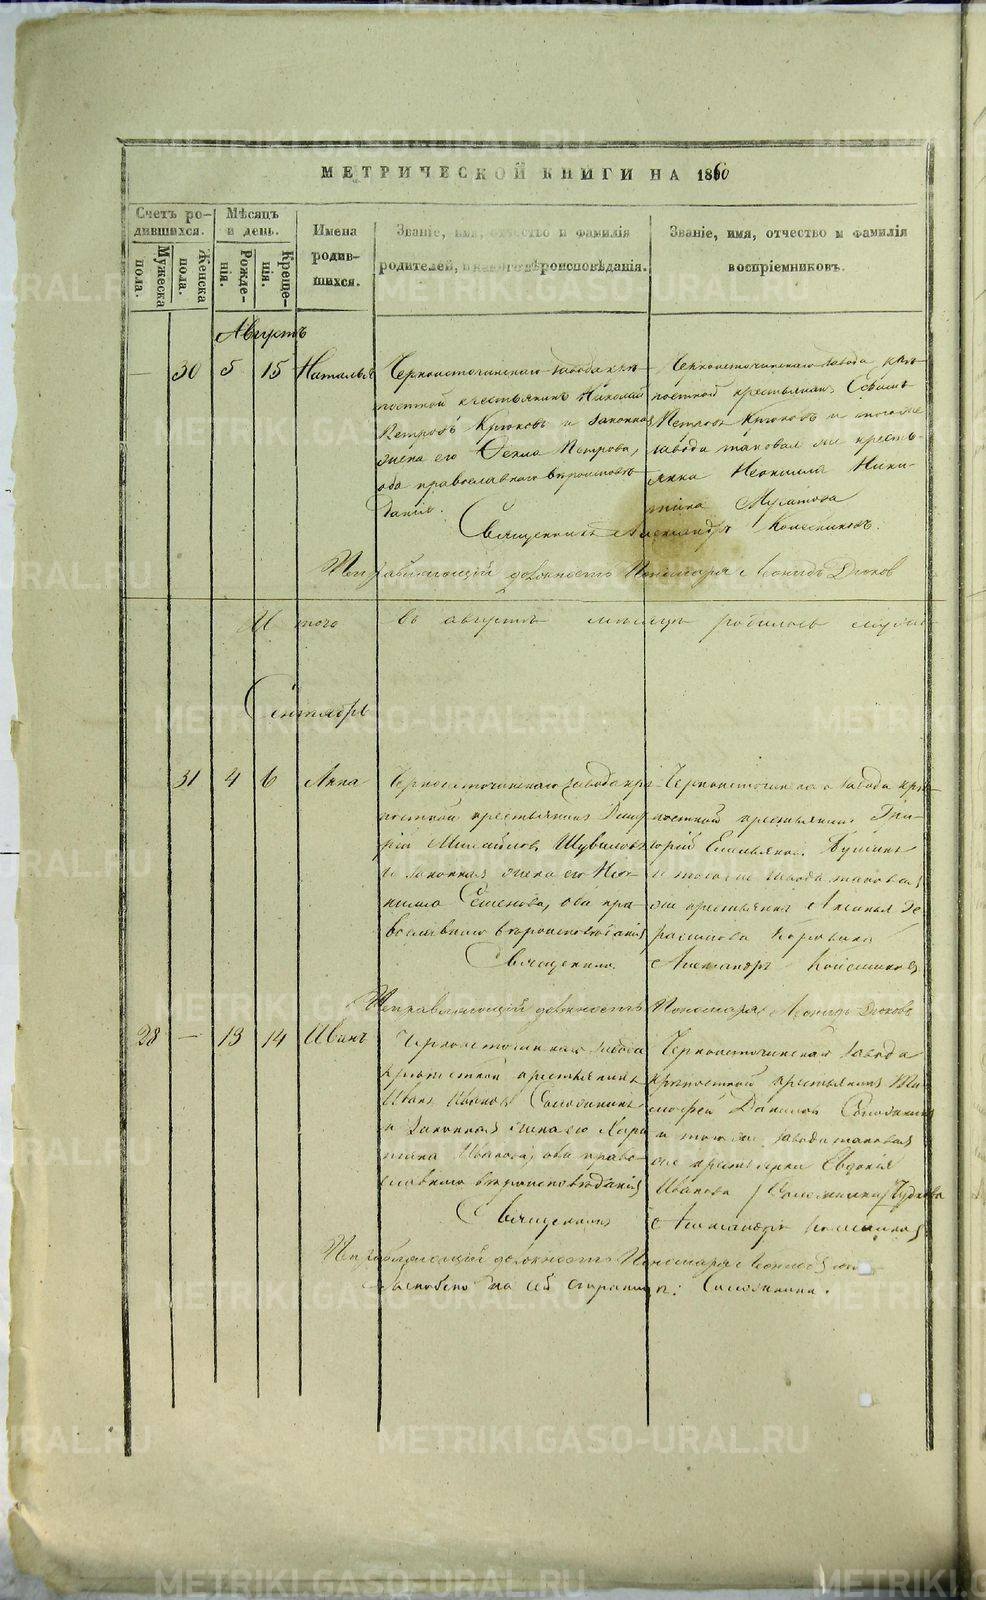 МЕТРИЧЕСКОЙ КНИГИ НА 1860
Счетъ родившихся.
Мужеска пола.
Женска пола.
Мѣсяцъ и день.
Рожденія.
Крещенія.
Имена родившихся.
Званіе, имя, отчество и фамилія
родителей, и какого вѣроисповѣданія.
Званіе, имя, отчество и фамилія
воспріемниковъ.
Августъ
— 30 5 15 Наталья
Черноисточинскаго завода крѣ-
постной крестьянинъ Николай
Петровъ Крюковъ и законная
жена его Фекла Петрова,
оба православнаго вѣроисповѣ-
данія.
Черноисточинскаго завода крѣ-
постной крестьянинъ
Петровъ Крюковъ и тогоже
завода таковая же кресть-
янка Неонилла Ники-
тина Мусатова
Священникъ Александръ Колесниковъ.
Исправляющій должность Пономаря Леонидъ Дюковъ
Итого въ августѣ мѣсяцѣ родилось
Сентябрь
31 4 6 Анна
Черноисточинскаго завода крѣ-
постной крестьянинъ Дмит-
рій Михайловъ Шуваловъ
и законная жена его Нео-
нилла Семенова, оба пра-
вославнаго вѣроисповѣданія
Черноисточинскаго завода крѣ-
постной крестьянинъ Гри-
горій Емельяновъ
и тогоже завода таковая
же крестьянка Аксинья Ге-
расимова
Священникъ Александръ Колесниковъ
Исправляющій должность Пономаря Леонидъ Дюковъ
28 — 13 14 Иванъ
Черноисточинскаго завода
крѣпостной крестьянинъ
Иванъ Ивановъ Соложнинъ
и законная жена его Хари-
тина Иванова, оба право-
славнаго вѣроисповѣданія
Черноисточинскаго завода
крѣпостной крестьянинъ Ти-
мофей Даниловъ
и тогоже завода таковая
же крестьянка Евдокія
Иванова
Священникъ Александръ Колесниковъ
Исправляющій должность Пономаря Леонидъ
на сей страницѣ:
METRIKI.GASO-URAL.RU